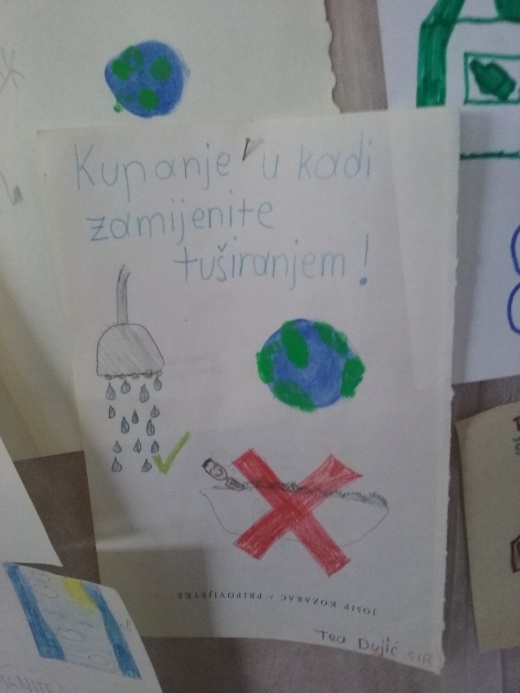 Kupanje u kadi
zamijenite
tuširanjem!
JOSIP KOZARAC / PRIPOVIJETKE
Tea Dujić